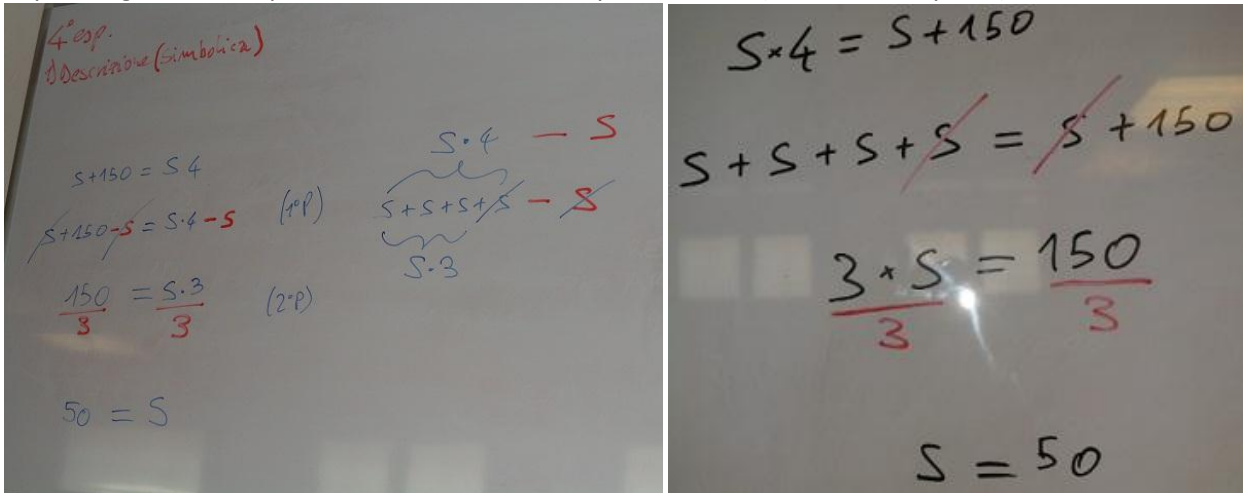 4° esp.
1) Descrizione (simbolica)
S+150 = S 4
S+150-S = S·4-S (1°P)
150/3 = S·3/3 (2°P)
50 = S
S·4 — S
S+S+S+S — S
S·3
S×4 = S+150
S+S+S+S = S+150
3*S/3 = 150/3
S = 50